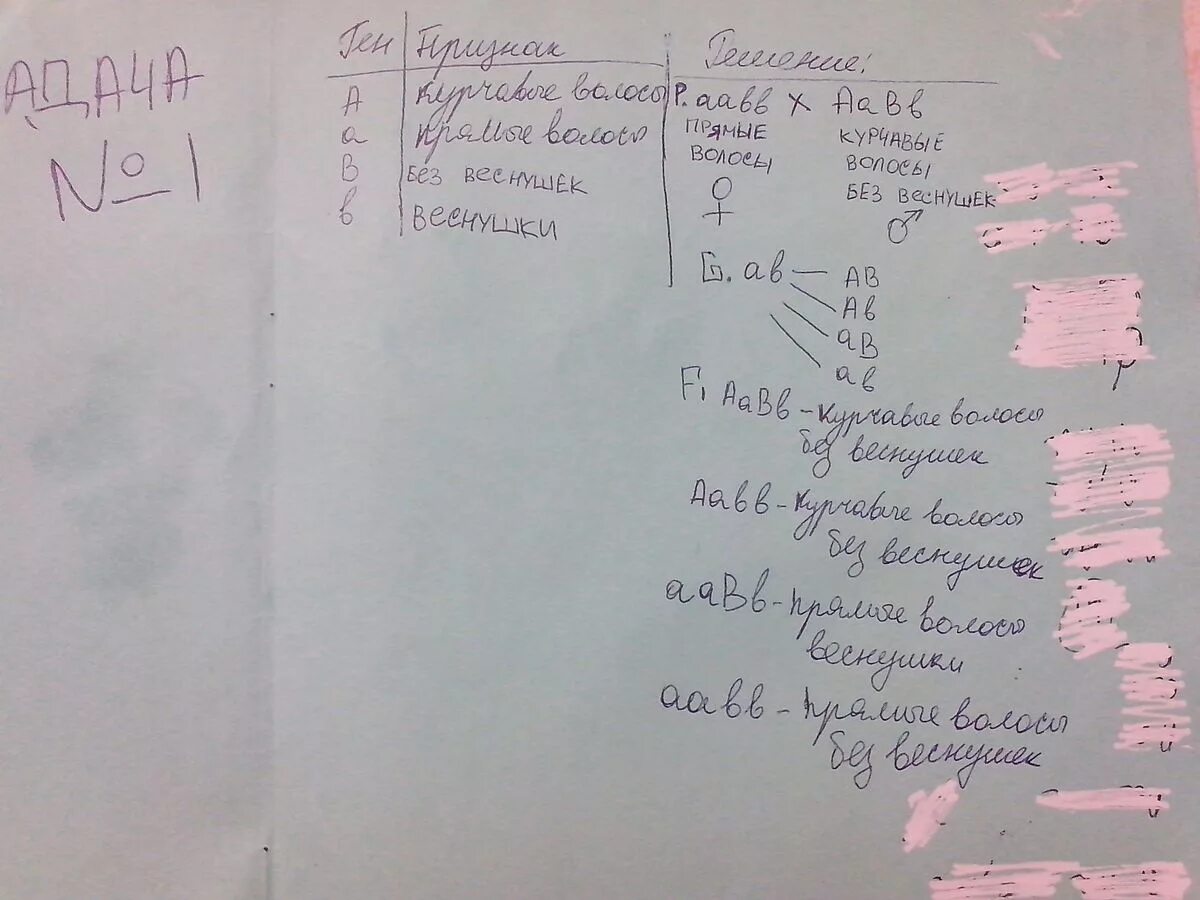 АДАЧА
№1
Ген Признак Решение:
А курчавые волосы
а прямые волосы
В БЕЗ ВЕСНУШЕК
в ВЕСНУШКИ
Р. аавв х АаВв
ПРЯМЫЕ КУРЧАВЫЕ
ВОЛОСЫ ВОЛОСЫ
♀ БЕЗ ВЕСНУШЕК
♂
G. ав — АВ
Ав
аВ
ав
F1 АаВв - курчавые волосы
без веснушек
Аавв - курчавые волосы
без веснушек
ааВв - прямые волосы
веснушки
аавв - прямые волосы
без веснушек